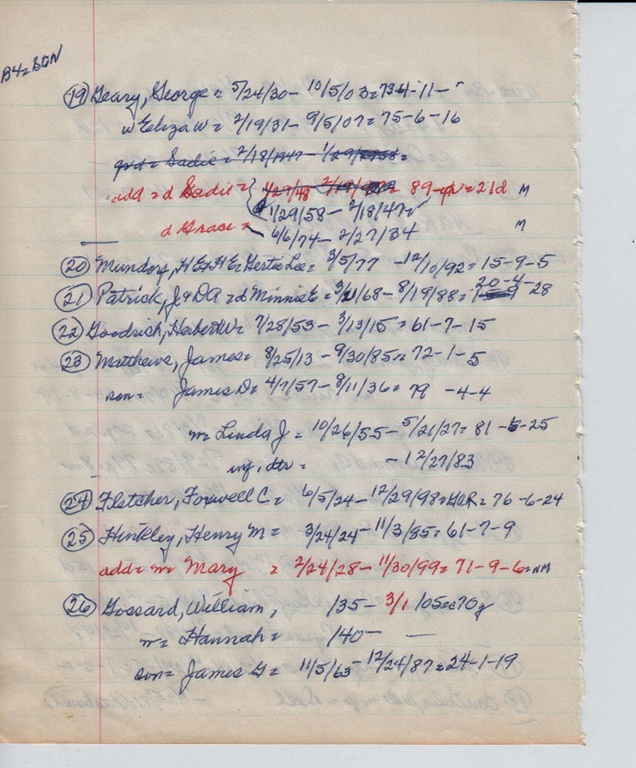 B4=
(19) Geary, George = 5/24/30 - 10/5/03 = 73-4-11 -
w Eliza W = 2/19/31 - 9/5/07 = 75-6-16
Sadie = 2/18/1947 - 1/29/
add = d Sadie = 1/29/48 2/18/ = 89 = 21d M
1/29/58 - 2/18/47
d Grace = 6/6/74 - 2/27/34 M
(20) Mundorf, H E & H E = Gertie Lee = 3/5/77 - 12/10/92 = 15-9-5
(21) Patrick, J & D A = d Minnie E = 3/21/68 - 8/19/88 = 20-4-28
(22) Goodrich, Herbert W = 7/28/53 - 3/13/15 = 61-7-15
(23) Matthews, James = 8/25/13 - 9/30/85 = 72-1-5
son = James D = 4/7/57 - 8/11/36 = 79 -4-4
m = Linda J = 10/26/55 - 5/21/27 = 81 - 5-25
inf. dtr = - 12/27/83
(24) Fletcher, Foxwell C = 6/5/24 - 12/29/98 = GAR = 76-6-24
(25) Hinkley, Henry M = 3/24/24 - 11/3/85 = 61-7-9
add = m Mary = 2/24/28 - 11/30/99 = 71-9-6 = NM
(26) Gossard, William, /35 - 3/1/05 70y
m = Hannah = /40 - —
son = James G = 11/5/63 - 12/24/87 = 24-1-19